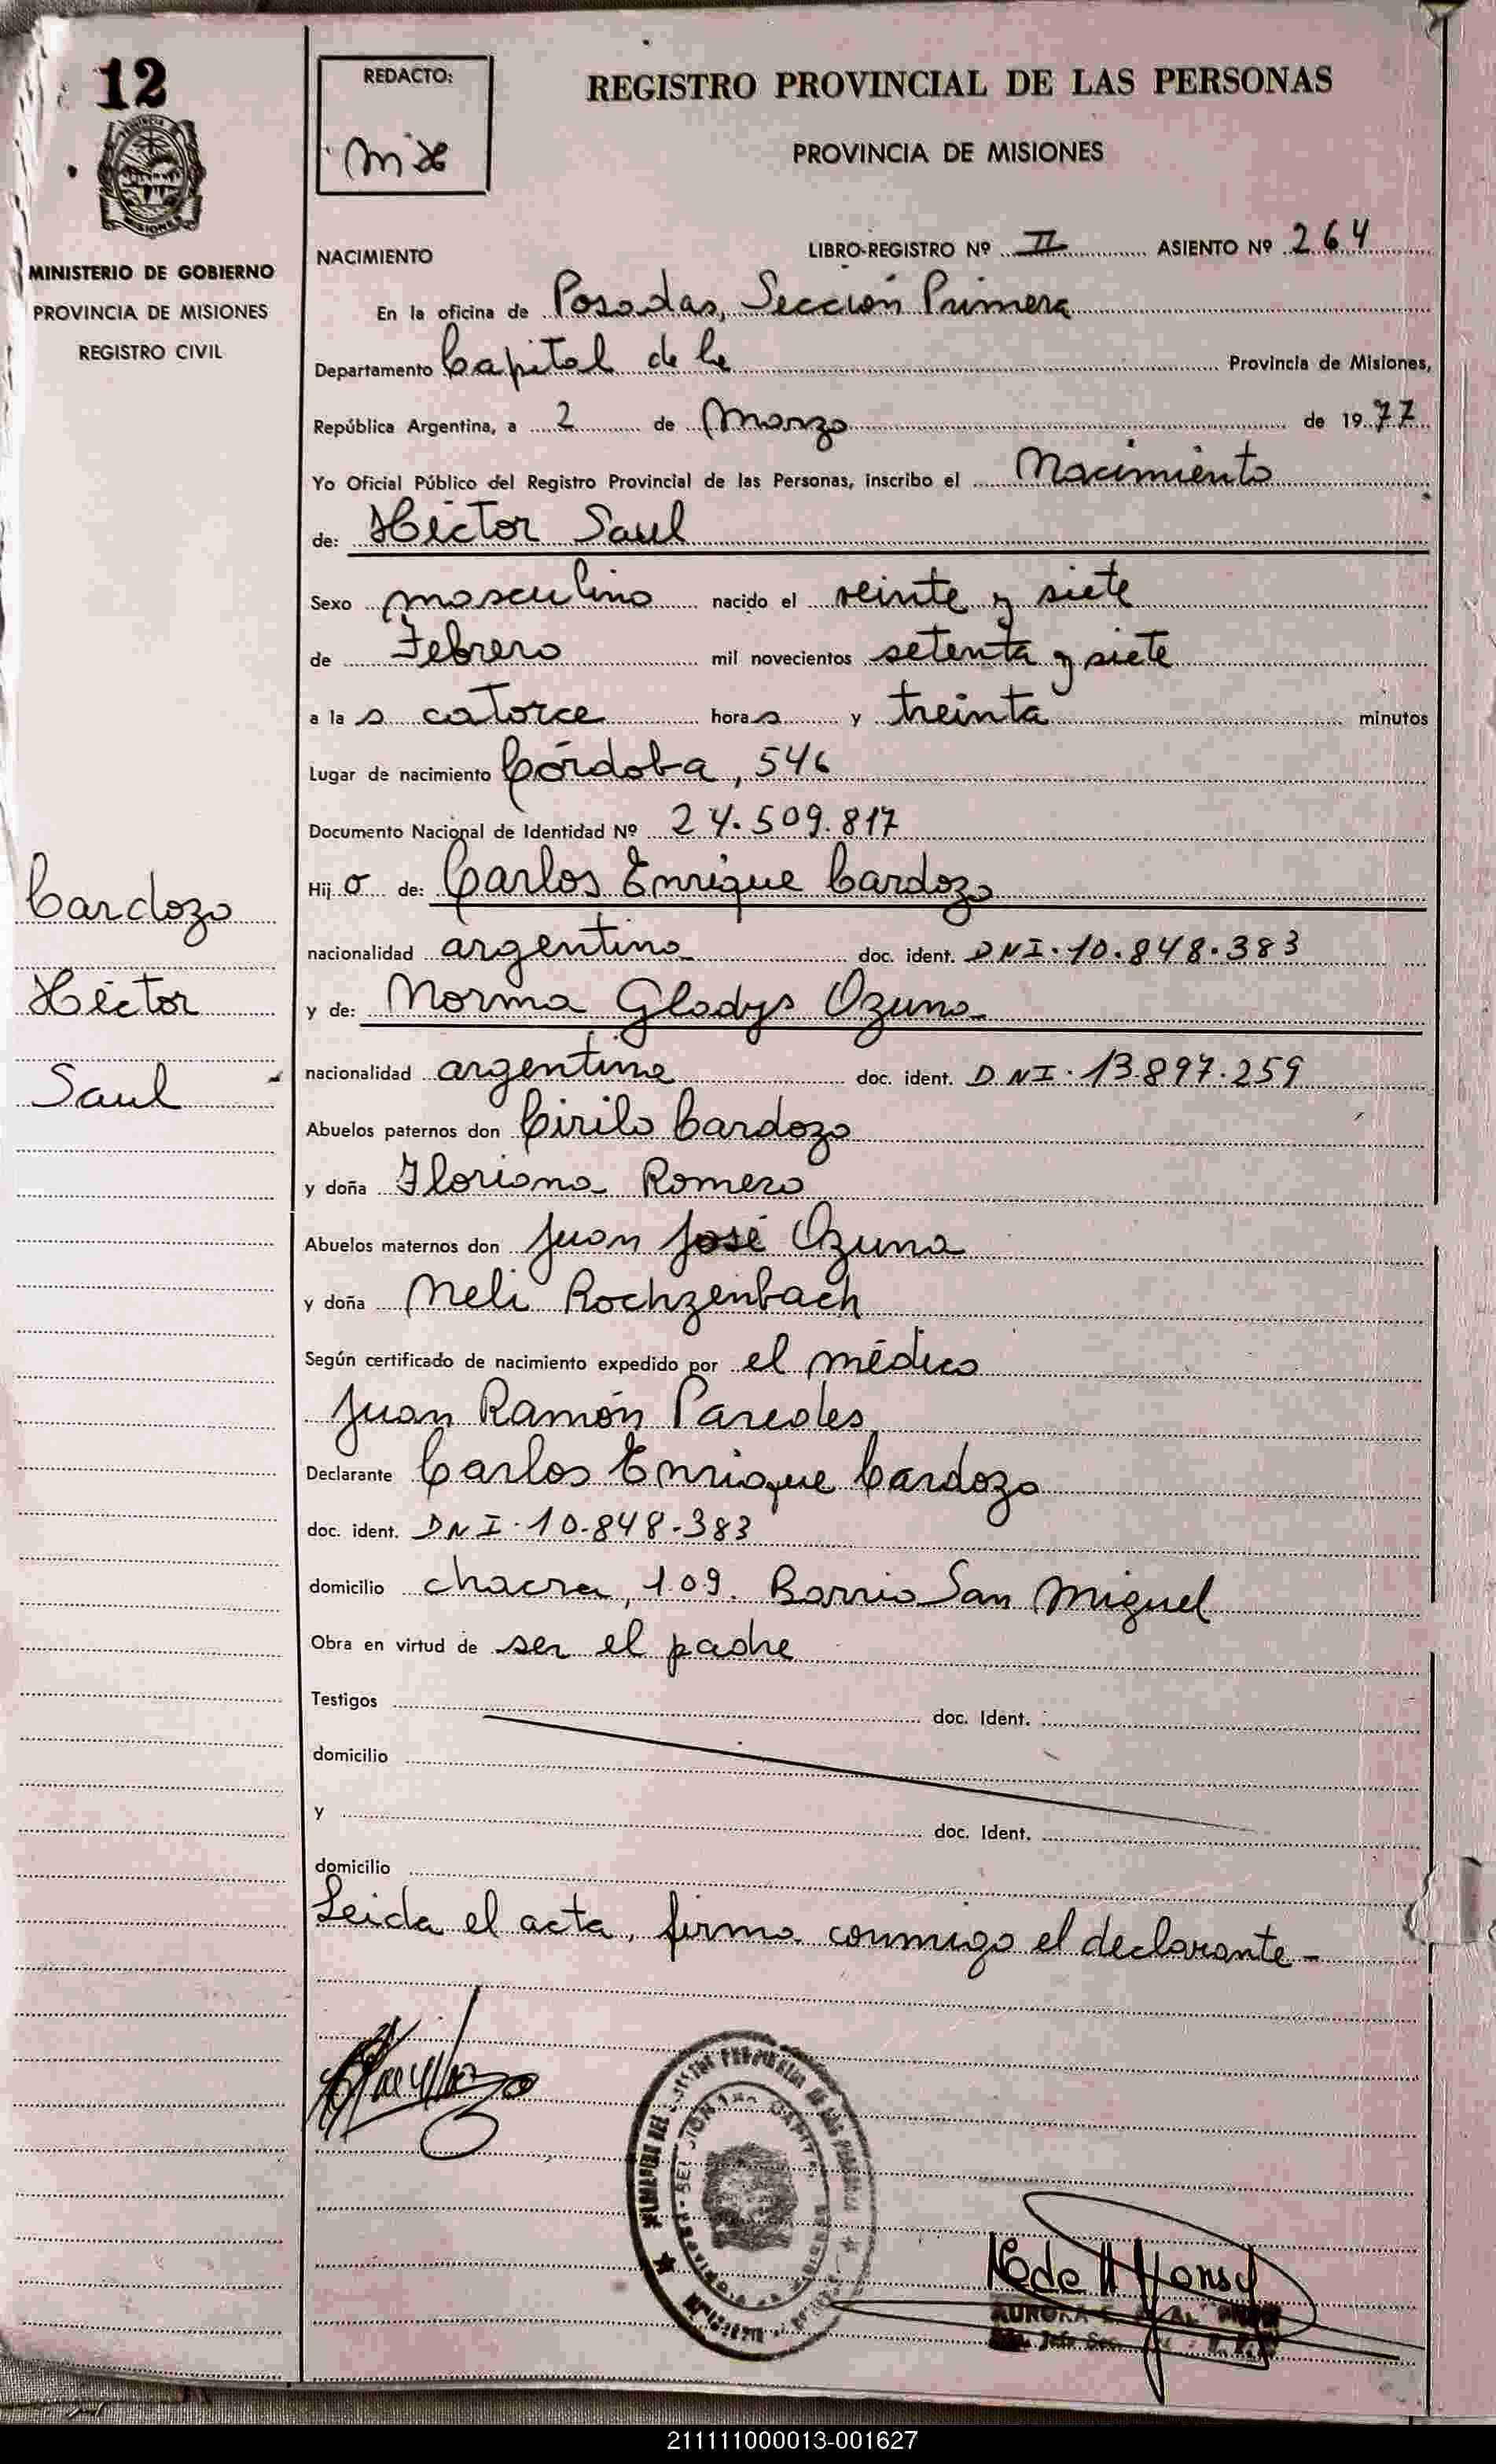 12
MISIONES
MINISTERIO DE GOBIERNO
PROVINCIA DE MISIONES
REGISTRO CIVIL
Cardozo
Héctor
Saul
REDACTO:
REGISTRO PROVINCIAL DE LAS PERSONAS
PROVINCIA DE MISIONES
NACIMIENTO LIBRO-REGISTRO Nº II ASIENTO Nº 264
En la oficina de Posadas, Sección Primera
Departamento Capital de la Provincia de Misiones,
República Argentina, a 2 de Marzo de 1977
Yo Oficial Público del Registro Provincial de las Personas, inscribo el Nacimiento
de: Héctor Saul
Sexo masculino nacido el veinte y siete
de Febrero mil novecientos setenta y siete
a las catorce horas y treinta minutos
Lugar de nacimiento Córdoba, 546
Documento Nacional de Identidad Nº 24.509.817
Hijo de: Carlos Enrique Cardozo
nacionalidad argentino doc. ident. DNI. 10.848.383
y de: Norma Gladys Ozuna
nacionalidad argentina doc. ident. DNI. 13.897.259
Abuelos paternos don Cirilo Cardozo
y doña Floriana Romero
Abuelos maternos don Juan José Ozuna
y doña Neli Rochzenbach
Según certificado de nacimiento expedido por el médico
Juan Ramón Paredes
Declarante Carlos Enrique Cardozo
doc. ident. DNI. 10.848.383
domicilio chacra, 109. Barrio San Miguel
Obra en virtud de ser el padre
Testigos doc. Ident.
domicilio
y doc. Ident.
domicilio
Leida el acta, firma conmigo el declarante -
AURORA
211111000013-001627